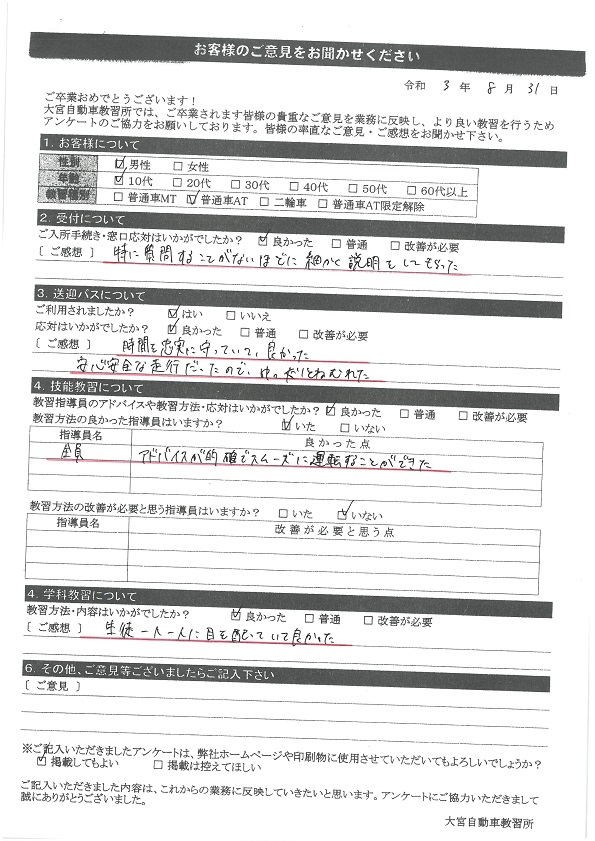 お客様のご意見をお聞かせください
令和 3 年 8 月 31 日
ご卒業おめでとうございます！
大宮自動車教習所では、ご卒業されます皆様の貴重なご意見を業務に反映し、より良い教習を行うため
アンケートのご協力をお願いしております。皆様の率直なご意見・ご感想をお聞かせ下さい。
1. お客様について
性別 ☑男性 □女性
年齢 ☑10代 □20代 □30代 □40代 □50代 □60代以上
教習種別 □普通車MT ☑普通車AT □二輪車 □普通車AT限定解除
2. 受付について
ご入所手続き・窓口応対はいかがでしたか？ ☑良かった □普通 □改善が必要
〔ご感想〕 特に質問することがないほどに細かく説明をしてもらった
3. 送迎バスについて
ご利用されましたか？ ☑はい □いいえ
応対はいかがでしたか？ ☑良かった □普通 □改善が必要
〔ご感想〕 時間を忠実に守っていて、良かった
安心安全な走行だったので、ゆったりとねむれた
4. 技能教習について
教習指導員のアドバイスや教習方法・応対はいかがでしたか？ ☑良かった □普通 □改善が必要
教習方法の良かった指導員はいますか？ ☑いた □いない
指導員名 良かった点
全員 アドバイスが的確でスムーズに運転することができた
教習方法の改善が必要と思う指導員はいますか？ □いた ☑いない
指導員名 改善が必要と思う点
4. 学科教習について
教習方法・内容はいかがでしたか？ ☑良かった □普通 □改善が必要
〔ご感想〕 生徒一人一人に目を配っていて良かった
6. その他、ご意見等ございましたらご記入下さい
〔ご意見〕
※ご記入いただきましたアンケートは、弊社ホームページや印刷物に使用させていただいてもよろしいでしょうか？
☑掲載してもよい □掲載は控えてほしい
ご記入いただきました内容は、これからの業務に反映していきたいと思います。アンケートにご協力いただきまして
誠にありがとうございました。
大宮自動車教習所